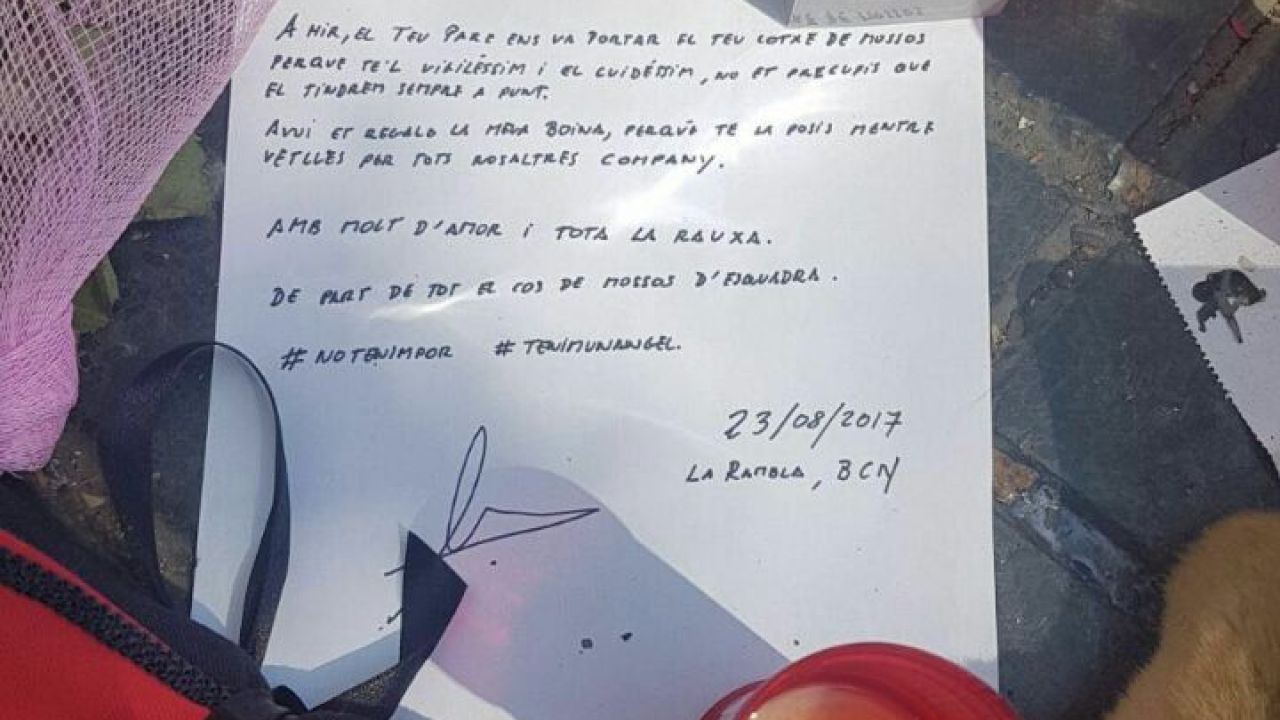 A MIR, EL TEU PARE ENS VA PORTAR EL TEU COTXE DE MOSSOS
PERQUE TE'L VIGILÉSSIM I EL CUIDÉSSIM, NO ET PRECUPIS QUE
EL TINDREM SEMPRE A PUNT.
AVUI ET REGALO LA MEVA BOINA, PERQUÈ TE LA POSIS MENTRE
VETLLES PER TOTS NOSALTRES COMPANY.
AMB MOLT D'AMOR I TOTA LA RAUXA.
DE PART DE TOT EL COS DE MOSSOS D'ESQUADRA.
#NOTENIMPOR #TENIMUNANGEL.
23/08/2017
LA RAMBLA, BCN